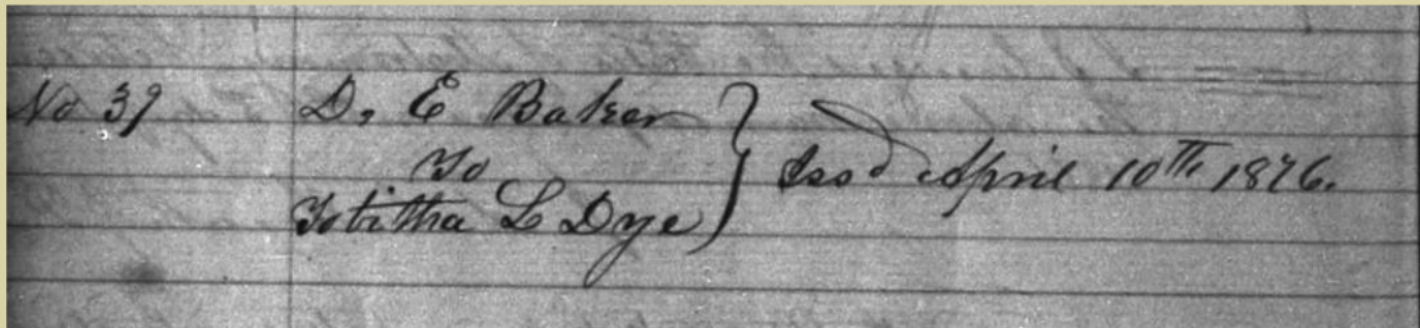 No 39 D. E Baker
To
Tobitha L Dye
Issd April 10th 1876.